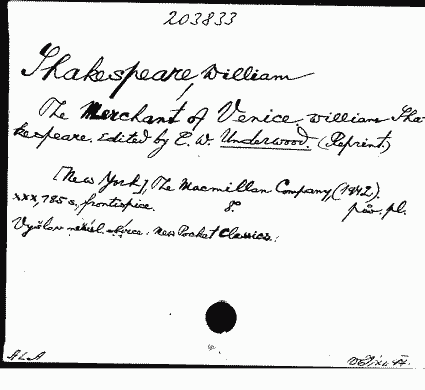 203833
Shakespeare, William
The Merchant of Venice. William Sha-
kespeare. Edited by E. W. Underwood. (Reprint.)
[New York], The Macmillan Company, (1942).
XXX, 785 s., frontispice. 8° pův. pl.
Vyšlo v nečísl. sbírce: New Pocket Classics.
ALA